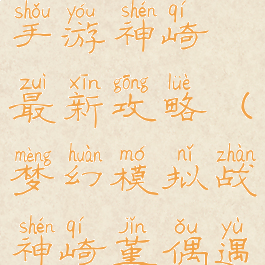 shǒu yóu shén qí
手游神崎
zuì xīn gōng lüè
最新攻略（
mèng huàn mó nǐ zhàn
梦幻模拟战
shén qí jǐn ǒu yù
神崎堇偶遇